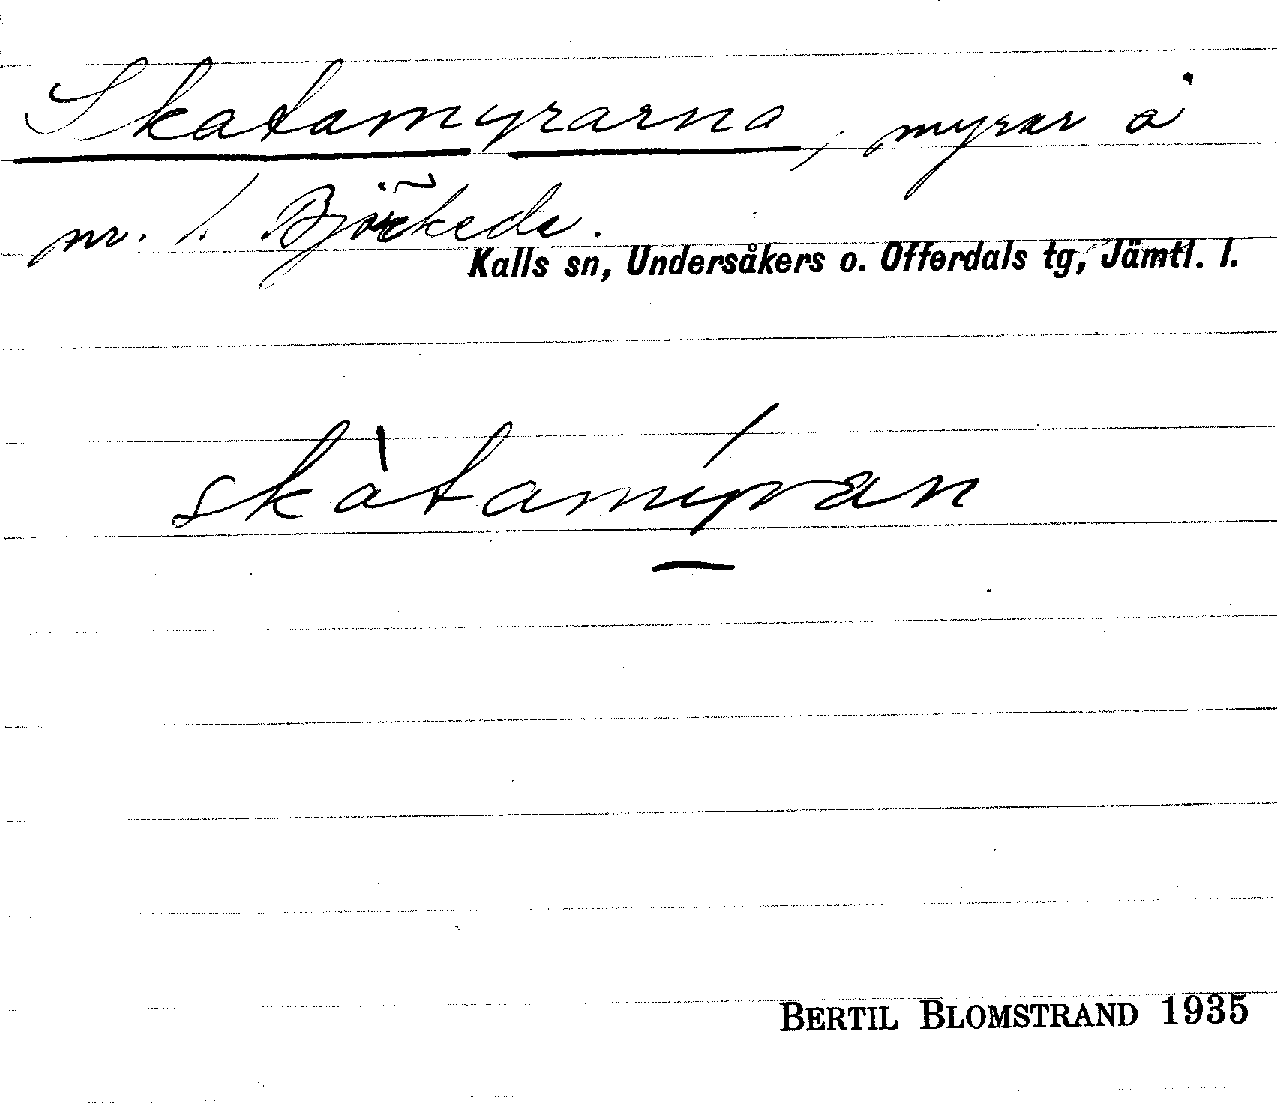 Skatamyrarna, myrar å
nr. 1. Björkede.
Kalls sn, Undersåkers o. Offerdals tg, Jämtl. l.
skàtamýran
BERTIL BLOMSTRAND 1935